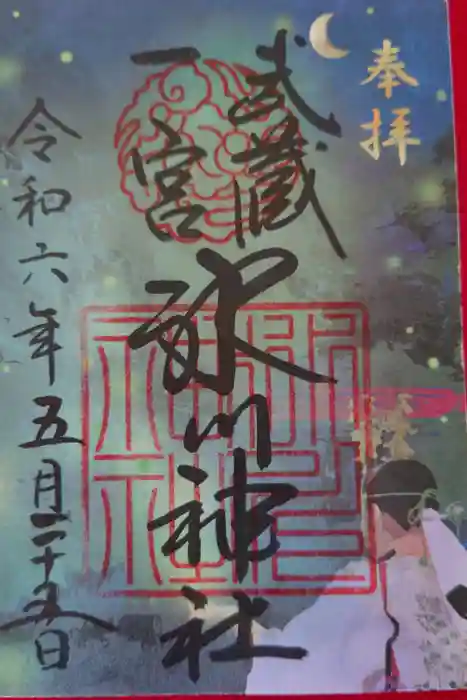 奉拝
武蔵
一宮
氷川神社
令和六年五月二十五日